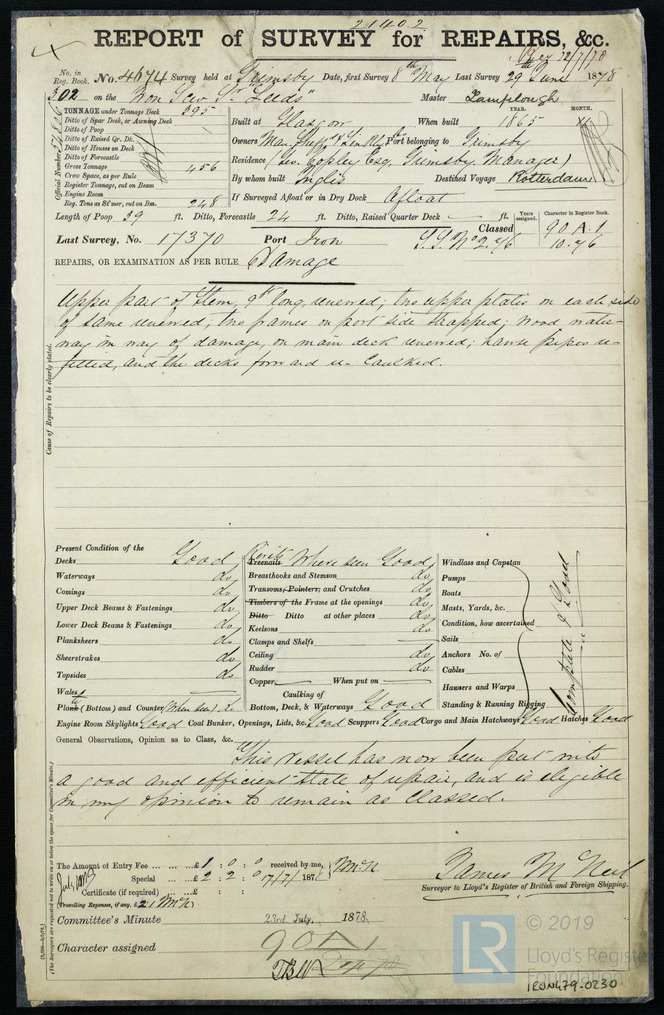 21402
REPORT of SURVEY for REPAIRS, &c.
No. in Reg. Book. No. 4674 Survey held at Grimsby Date, first Survey 8th May Last Survey 29th June 1878
302 on the Iron Screw Sr "Leeds" Master Lamplough
TONNAGE under Tonnage Deck 395
Ditto of Spar Deck, or Awning Deck
Ditto of Poop
Ditto of Raised Qr. Dk.
Ditto of Houses on Deck
Ditto of Forecastle
Gross Tonnage 456
Crew Space, as per Rule
Register Tonnage, cut on Beam
Engine Room
Reg. Tons as St'mer, cut on Bm. 248
Official Number
Built at Glasgow When built YEAR. 1865 MONTH. XI
Owners Man. Sheffd & Lin. Rly Co Port belonging to Grimsby
Residence (Geo. Copley Esq, Grimsby. Manager)
By whom built Inglis Destined Voyage Rotterdam
If Surveyed Afloat or in Dry Dock Afloat
Length of Poop 39 ft. Ditto, Forecastle 24 ft. Ditto, Raised Quarter Deck — ft.
Years assigned. Character in Register Book.
Last Survey, No. 17370 Port Iron S.S. No 2. 76 Classed 90 A.1
10.76
REPAIRS, OR EXAMINATION AS PER RULE Damage
Upper part of Stem, 9ft long, renewed; two upper plates on each side
of same renewed; two frames on port side strapped; wood water-
way in way of damage, on main deck renewed; hawse pipes re-
fitted, and the decks forward re-caulked.
Cause of Repairs to be clearly stated.
Present Condition of the
Decks Good
Waterways do
Comings do
Upper Deck Beams & Fastenings do
Lower Deck Beams & Fastenings do
Planksheers do
Sheerstrakes do
Topsides do
Wales
Plank (Bottom) and Counter (When seen) do
Rivets Treenails Where seen Good
Breasthooks and Stemson do
Transoms, Pointers, and Crutches do
Timbers of the Frame at the openings do
Ditto Ditto at other places do
Keelsons do
Clamps and Shelfs —
Ceiling do
Rudder do
Copper — When put on —
Caulking of
Bottom, Deck, & Waterways Good
Windlass and Capstan
Pumps
Boats
Masts, Yards, &c.
Condition, how ascertained
Sails
Anchors No. of
Cables
Hawsers and Warps
Standing & Running Rigging
Complete & Good
Engine Room Skylights Good Coal Bunker, Openings, Lids, &c. Good Scuppers Good Cargo and Main Hatchways Good Hatches Good
General Observations, Opinion as to Class, &c.
This Vessel has now been put into
a good and efficient state of repair, and is eligible
in my opinion to remain as Classed.
(The Surveyors are requested not to write on or below the space for Committee's Minute.)
The Amount of Entry Fee ... £ 1 : 0 : 0 received by me, McN
Special ... £ 2 : 2 : 0 17/7/1878
Certificate (if required) ... £ : :
Travelling Expenses, if any, £
James McNeil
Surveyor to Lloyd's Register of British and Foreign Shipping.
Committee's Minute 23rd July, 1878.
Character assigned 90 A 1
© 2019
LR
Lloyd's Register
Foundation
IRON479-0230